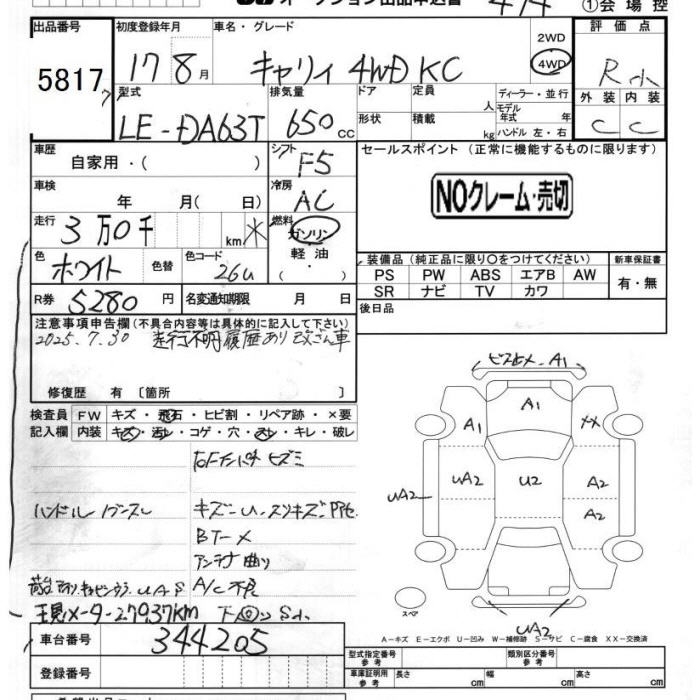 ①会場控
出品番号
5817
初度登録年月
17 8月
車名・グレード
キャリィ 4WD KC
2WD
4WD
評価点
R
外装 内装
C C
型式
LE-DA63T
排気量
650 CC
ドア
定員
人
ディーラー・並行
形状
積載
kg
モデル年式 年
ハンドル 左・右
車歴
自家用・( )
シフト
F5
セールスポイント (正常に機能するものに限ります)
NOクレーム・売切
車検
年 月( 日)
冷房
AC
走行
3万0千 km
燃料
ガソリン
・
軽油
・
( )
色
ホワイト
色替
色コード
26U
装備品(純正品に限り○をつけてください)
PS PW ABS エアB AW
SR ナビ TV カワ
新車保証書
有・無
R券
5280円
名変通知期限 月 日
後日品
注意事項申告欄(不具合内容等は具体的に記入して下さい)
2025.7.30 走行不明 履歴あり 改ざん車
修復歴 有〔箇所 〕
検査員記入欄
FW キズ・飛石・ヒビ割・リペア跡・×要
内装 キズ・汚レ・コゲ・穴・スレ・キレ・破レ
ハンドル
キズ
BTーメ
アンテナ曲り
A/C不良
現メーター27937km
A1
A1
A1
XX
UA2
UA2
U2
A2
A2
UA2
スペア
A-キズ E-エクボ U-凹み W-補修跡 S-サビ C-腐食 XX-交換済
車台番号
344205
登録番号
型式指定番号 参考
類別区分番号 参考
車庫証明用 参考
長さ cm
幅 cm
高さ cm